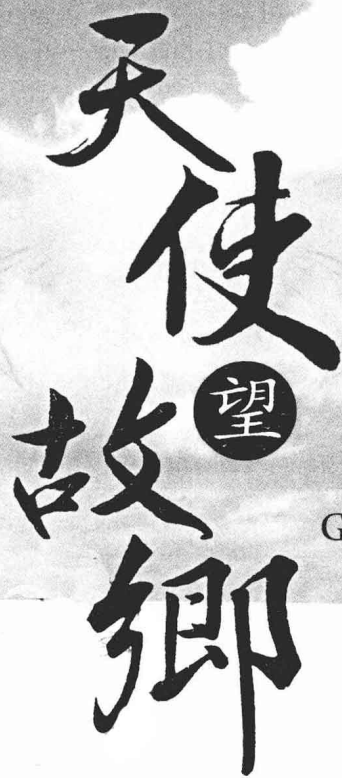 天使
望
故鄉
G